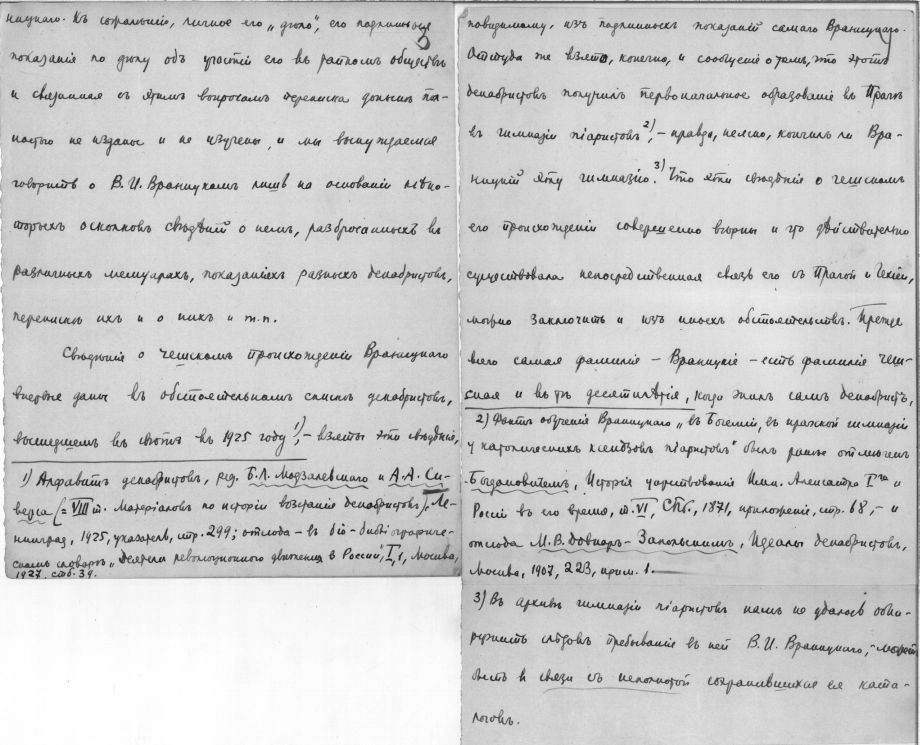 ницкаго. Къ сожалѣнію, личное его „дѣло“, его подлинныя
показанія по дѣлу объ участіи его въ тайномъ обществѣ
и связанная съ этимъ вопросомъ переписка донынѣ пол-
ностью не изданы и не изучены, и мы вынуждаемся
говорить о В. И. Враницкомъ лишь на основаніи нѣко-
торыхъ осколковъ свѣдѣній о немъ, разбросанныхъ въ
различныхъ мемуарахъ, показаніяхъ разныхъ декабристовъ,
перепискѣ ихъ и о нихъ и т.п.
Свѣдѣнія о чешскомъ происхожденіи Враницкаго
впервые даны въ обстоятельномъ спискѣ декабристовъ,
вышедшемъ въ свѣтъ въ 1925 году 1), – взяты эти свѣдѣнія,
1) Алфавитъ декабристовъ, ред. Б. Л. Модзалевскаго и А. А. Си-
верса (= VIII т. Матеріаловъ по исторіи возстанія декабристовъ), Ле-
нинград, 1925, указатель, стр. 299; отсюда – въ біо-библіографиче-
скомъ словарѣ „Деятели революционного движения в России“, I, 1, Москва,
1927, стб. 39.
повидимому, изъ подлинныхъ показаній самаго Враницкаго.
Оттуда же взято, конечно, и сообщеніе о томъ, что этотъ
декабристъ получилъ первоначальное образованіе въ Прагѣ
въ гимназіи піаристовъ 2), – правда, неясно, кончилъ ли Вра-
ницкій эту гимназію. 3) Что эти свѣдѣнія о чешскомъ
его происхожденіи совершенно вѣрны и что дѣйствительно
существовала непосредственная связь его съ Прагой и Чехіей,
можно заключить и изъ иныхъ обстоятельствъ. Прежде
всего самая фамилія – Враницкій – есть фамилія чеш-
ская и въ тѣ десятилѣтія, когда жилъ самъ декабристъ,
2) Фактъ обученія Враницкаго „въ Богеміи, въ пражской гимназіи
у католическихъ ксендзовъ піаристовъ“ былъ ранѣе отмѣченъ
Богдановичемъ, Исторія царствованія Имп. Александра I-го и
Россіи въ его время, т. VI, СПб., 1871, приложеніе, стр. 68, – и
отсюда М. В. Довнаръ-Запольскимъ, Идеалы декабристовъ,
Москва, 1907, 223, прим. 1.
3) Въ архивѣ гимназіи піаристовъ намъ не удалось обна-
ружить слѣдовъ пребыванія въ ней В. И. Враницкаго, – можетъ
быть въ связи съ неполнотой сохранившихся ея ката-
логовъ.